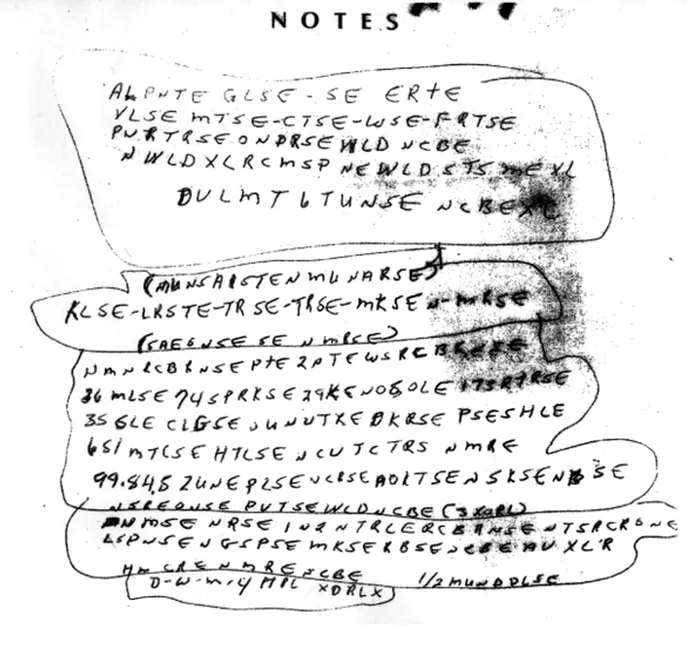 NOTES
ALPNTE GLSE-SE ERTE
VLSE MTSE-CTSE-WSE-FRTSE
PNRTRSEONDRSEWLD NCBE
NWLDXLRCMSP NEWLDSTSMEXL
DULMT6TUNSE NCBEXC
(MUNSAISTENMUNARSE)
KLSE-LRSTE-TRSE-TRSE-MKSEN-MRSE
(SAEGNSESENMRSE)
NMNRCBRNSEPTE2PTEWSRCBRNSE
36MLSE74SPRKSE29KENOSOLE173RTRSE
35GLE CLGSEUNUTXEDKRSE PSESHLE
651MTCSE HTLSENCUTCTRS NMRE
99.84.52UNEPLSENCRSEAOLTSENSKSENBSE
NSREONSE PUTSEWLDNCBE(3XORL)
NRSE IN2NTRLERCBRNSENTSRCRONE
LSPNSENGSPSE MKSERBSENCBEAUXL'R
HM CRENMRENCBE
1/2MUNDDLSE
D-W-M-4 MIL XDRLX